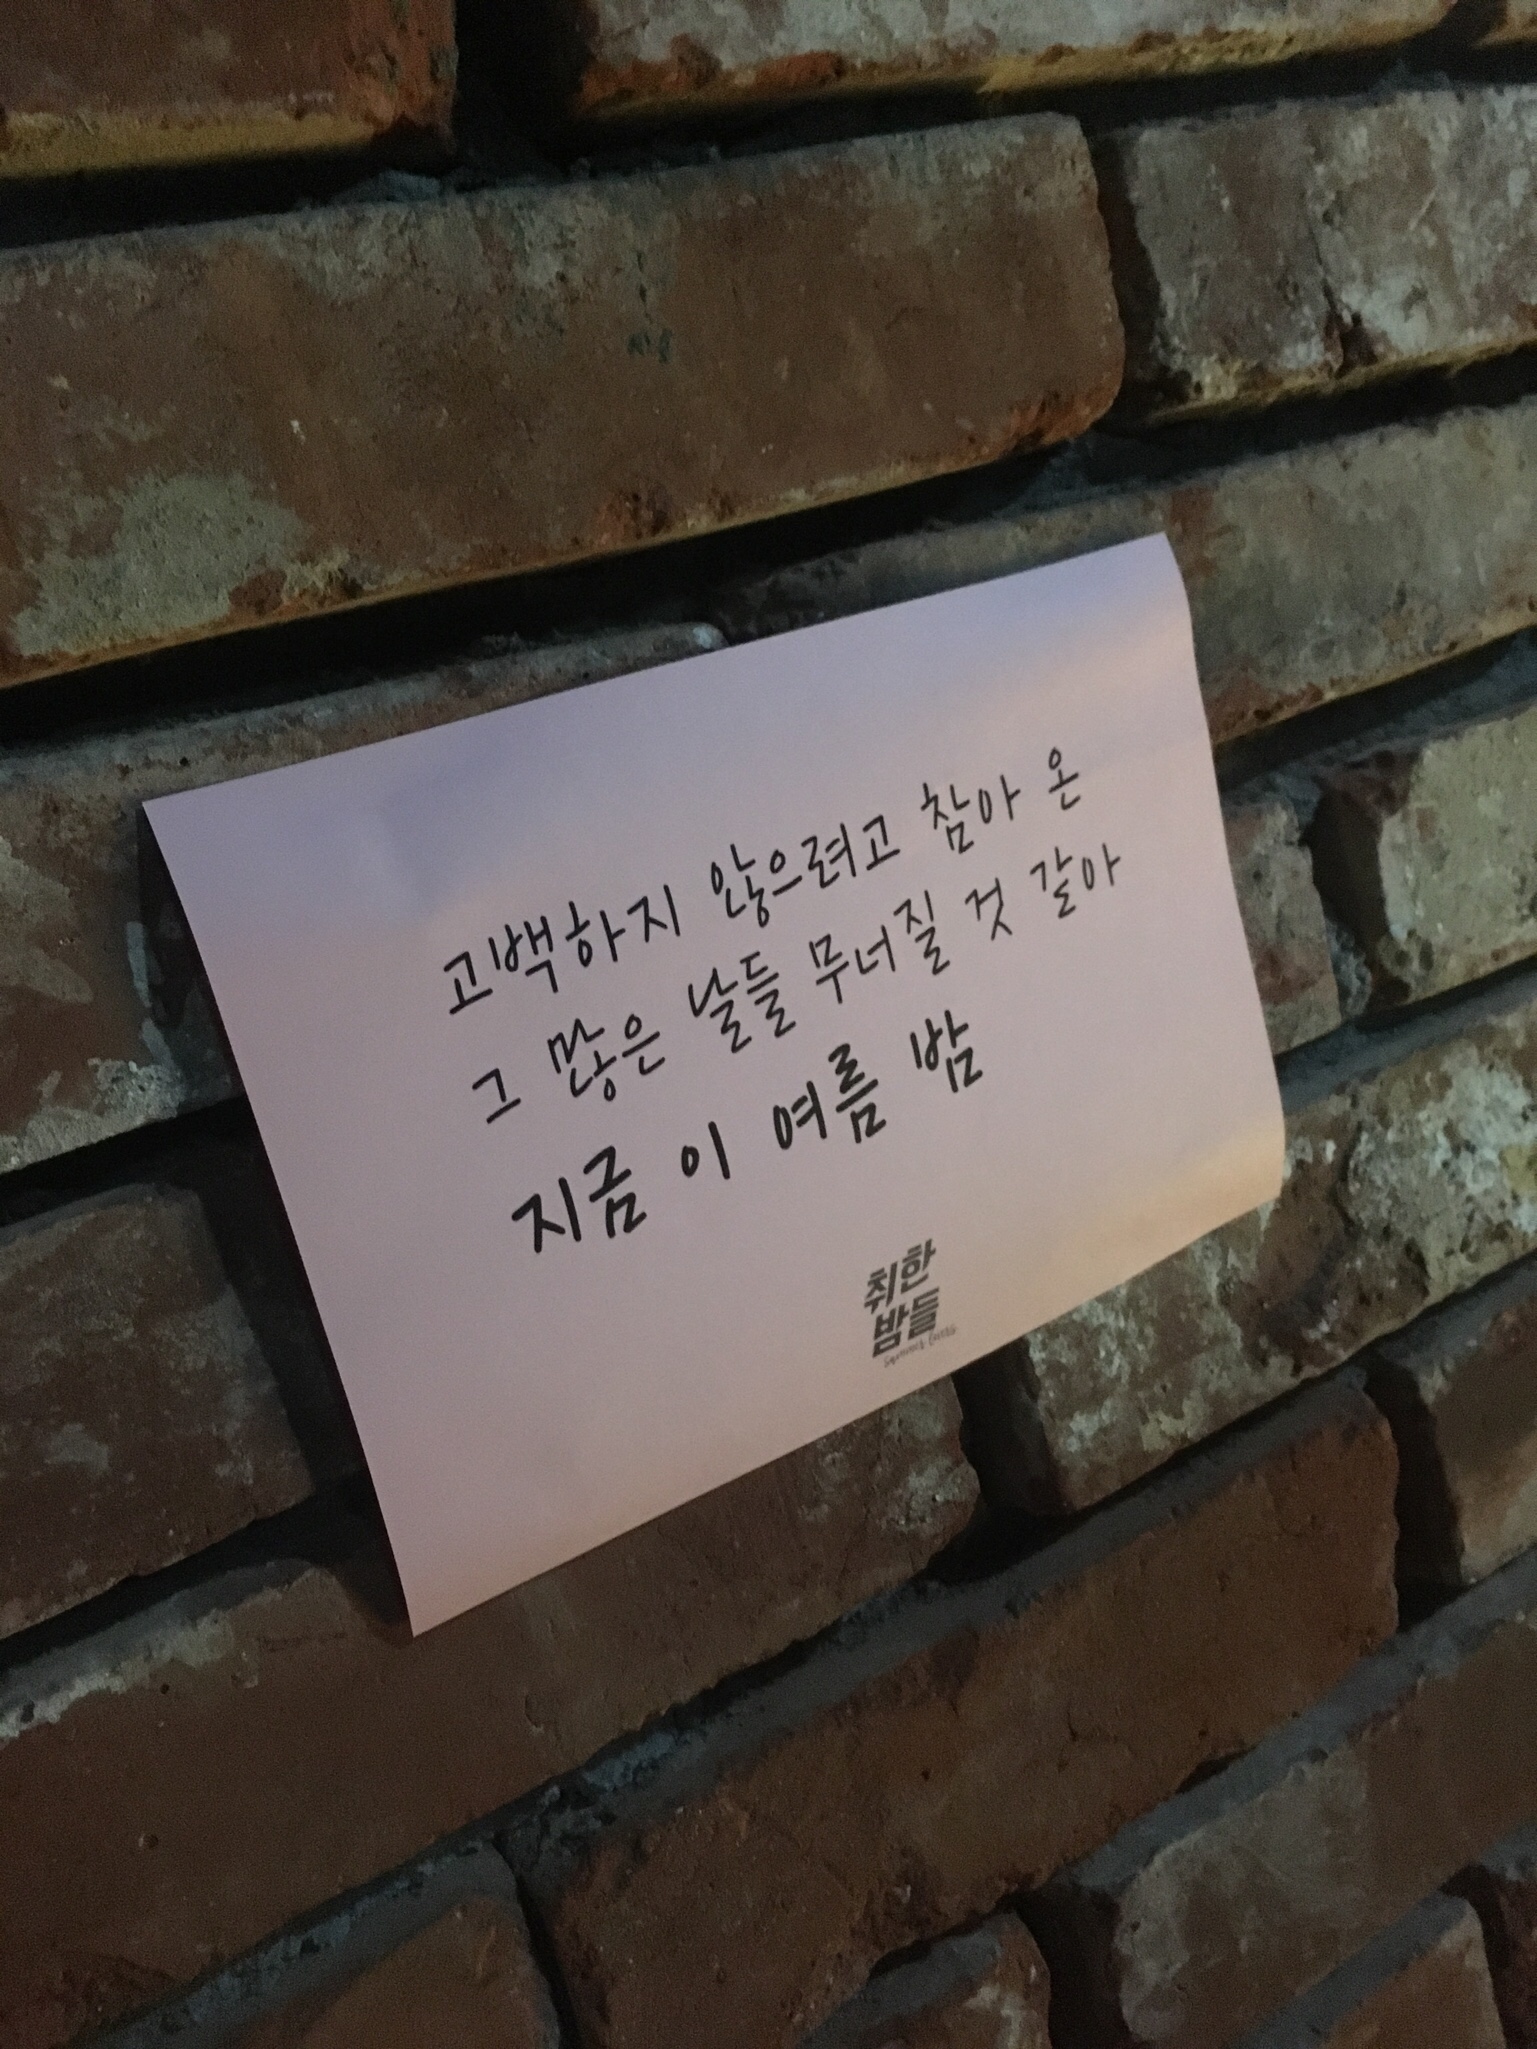 고백하지 않으려고 참아 온
그 많은 날들 무너질 것 같아
지금 이 여름 밤
취한
밤들